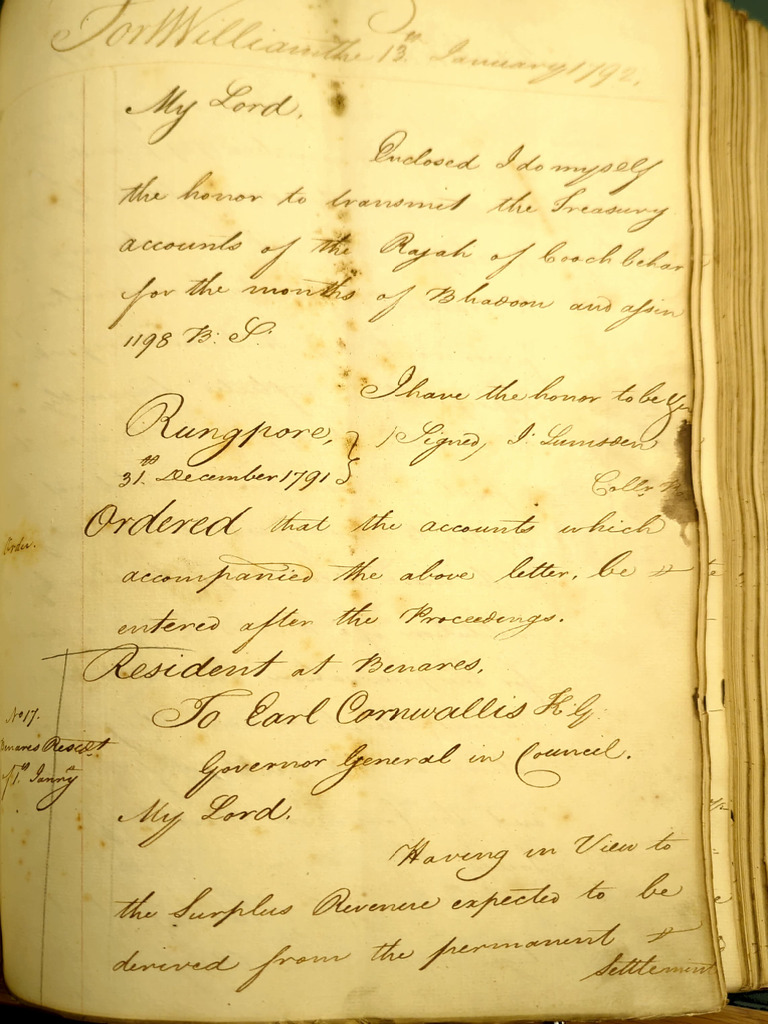 Fort William the 13th January 1792.
My Lord,
Enclosed I do myself
the honor to transmit the Treasury
accounts of the Rajah of Cooch behar
for the months of Bhadoon and assin
1198 B: S:
I have the honor to be &ca
Rungpore, } (Signed) J: Lumsden
31st December 1791 } Collr
Order. Ordered that the accounts which
accompanied the above letter, be
entered after the Proceedings.
Resident at Benares,
No 17. To Earl Cornwallis K:G:
Benares Resdt Governor General in Council.
1st Janry My Lord.
Having in View to
the Surplus Revenue expected to be
derived from the permanent
settlement